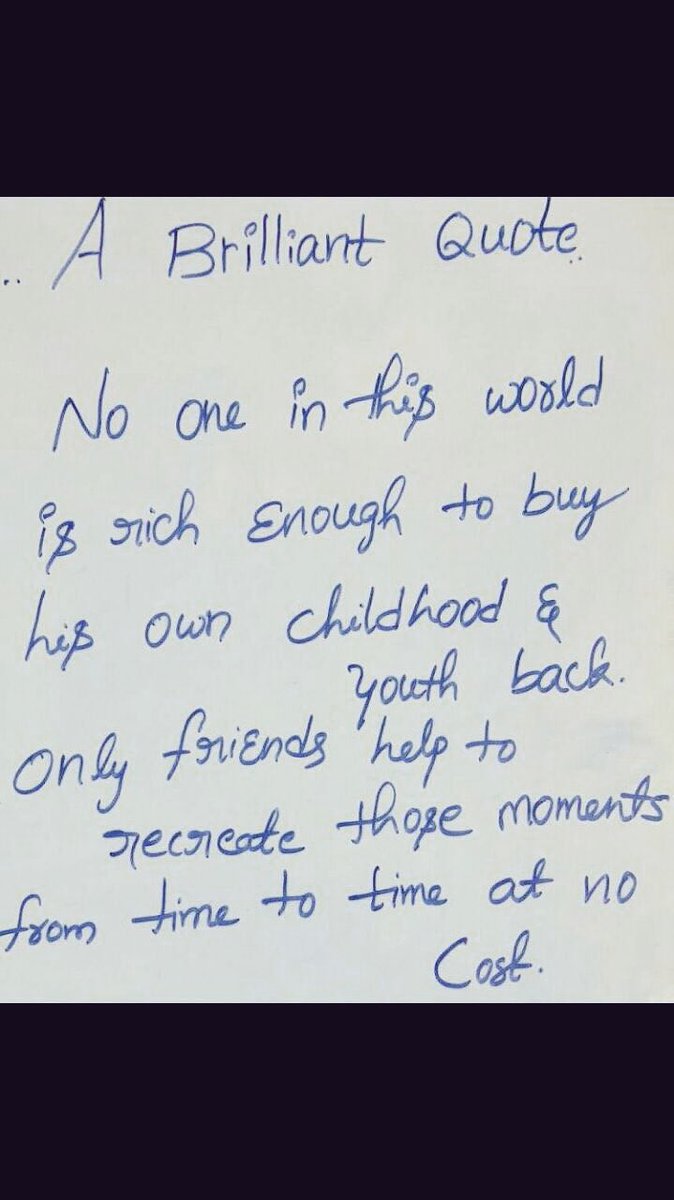 .. A Brilliant Quote..
No one in this world
is rich Enough to buy
his own childhood &
youth back.
Only friends help to
recreate those moments
from time to time at no
Cost.